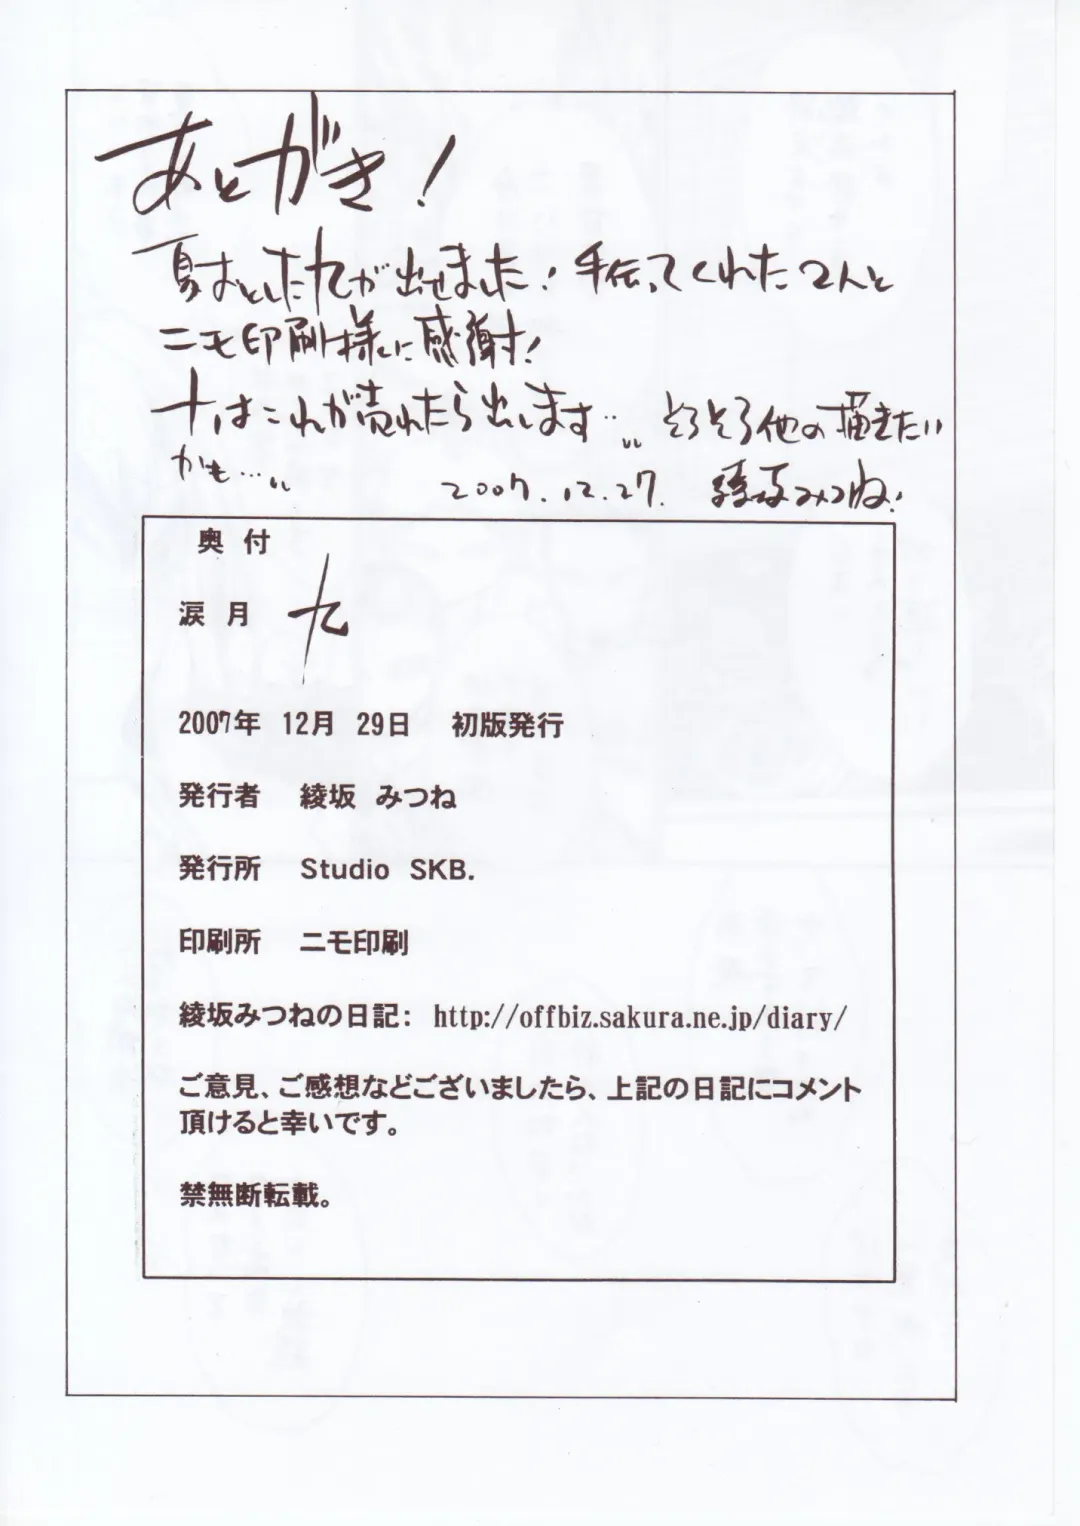 あとがき!
夏おとした九が出せました! 手伝ってくれた2人と
ニモ印刷様に感謝!
十はこれが売れたら出します… そろそろ他の描きたい
かも…
2007.12.27. 綾坂みつね!
奥付
涙月 九
2007年 12月 29日 初版発行
発行者 綾坂 みつね
発行所 Studio SKB.
印刷所 ニモ印刷
綾坂みつねの日記: http://offbiz.sakura.ne.jp/diary/
ご意見、ご感想などございましたら、上記の日記にコメント
頂けると幸いです。
禁無断転載。